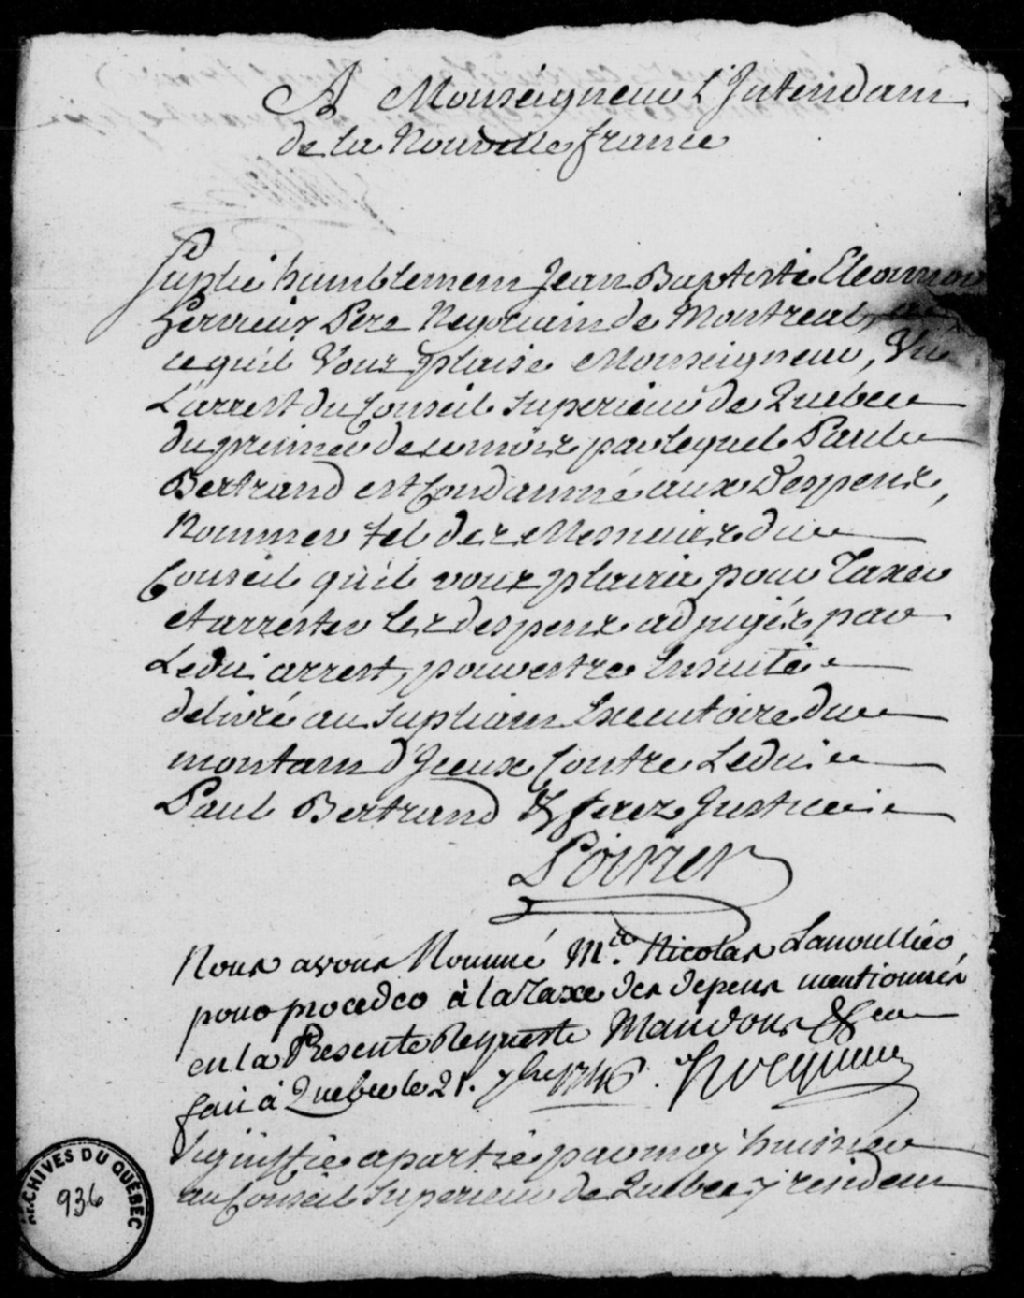 A Monseigneur L'Intendant
de la Nouvelle france
Suplie humblement Jean Baptiste Eleonnor
hervieux Pere Negotiant de Montreal, a
ce quil Vous plaise Monseigneur, Vu
L'arrest du Conseil Superieur de Quebec
du premier de ce mois par lequel Paul
Bertrand est Condamné aux Despens,
Nommer tel de Messieurs du
Conseil quil vous plaira pour Taxer
et arrester les despens adjugés par
Ledit arrest, pour estre Ensuite
delivré au Supliant Executoire du
montant d'Iceux Contre Ledit
Paul Bertrand & ferez Justice
Poirier
Nous avons Nommé Me. Nicolas Lanoullier
pour proceder à la Taxe des depens mentionnés
en la Presente Requeste Mandons &ca
fait à Quebec le 21. 7bre 1746. Hocquart
Signiffié a partie par moy huissier
au Conseil Superieur de Quebec y resident
ARCHIVES DU QUÉBEC
936